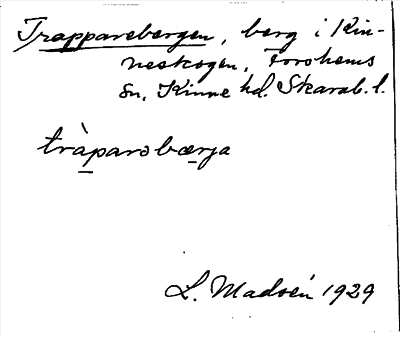 Trapparebergen, berg i Kin-
neskogen, Forshems
sn, Kinne hd. Skarab. l.
tràparobærja
L. Madsén 1929